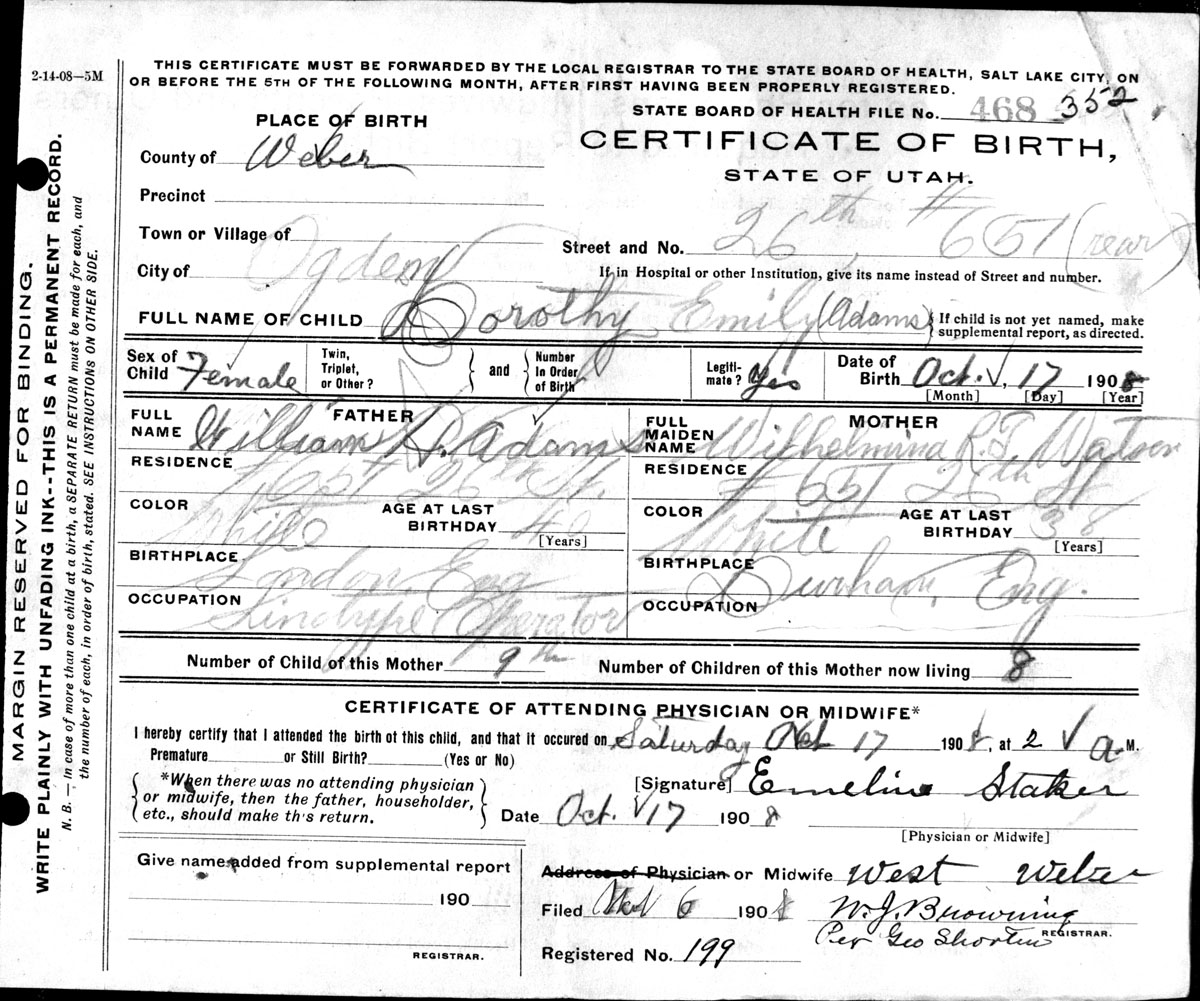 2-14-08—5M
THIS CERTIFICATE MUST BE FORWARDED BY THE LOCAL REGISTRAR TO THE STATE BOARD OF HEALTH, SALT LAKE CITY, ON
OR BEFORE THE 5TH OF THE FOLLOWING MONTH, AFTER FIRST HAVING BEEN PROPERLY REGISTERED.
STATE BOARD OF HEALTH FILE No. 468 352
PLACE OF BIRTH
CERTIFICATE OF BIRTH,
STATE OF UTAH.
County of Weber
Precinct
Town or Village of
Street and No. 26th # 651 (rear)
City of Ogden
If in Hospital or other Institution, give its name instead of Street and number.
FULL NAME OF CHILD Dorothy Emily (Adams) If child is not yet named, make
supplemental report, as directed.
Sex of Child Female Twin, Triplet, or Other? and Number In Order of Birth Legiti-mate? Yes Date of Birth Oct. 17 1908
[Month] [Day] [Year]
FATHER
FULL NAME William H. Adams
RESIDENCE # 651 26th St.
COLOR White AGE AT LAST BIRTHDAY 40
[Years]
BIRTHPLACE London, Eng
OCCUPATION Linotype Operator
MOTHER
FULL MAIDEN NAME Wilhelmina R.T. Watson
RESIDENCE # 651 26th St
COLOR White AGE AT LAST BIRTHDAY 38
[Years]
BIRTHPLACE Durham, Eng.
OCCUPATION
Number of Child of this Mother 9th Number of Children of this Mother now living 8
CERTIFICATE OF ATTENDING PHYSICIAN OR MIDWIFE*
I hereby certify that I attended the birth of this child, and that it occured on Saturday Oct 17 1908, at 2 a M.
Premature or Still Birth? (Yes or No)
*When there was no attending physician
or midwife, then the father, householder,
etc., should make th's return.
[Signature] Emeline Staker
Date Oct. 17 1908
[Physician or Midwife]
Give name added from supplemental report
190
REGISTRAR.
Address of Physician or Midwife West Weber
Filed 6 1908 W. J. Browning
Per Geo Shorten REGISTRAR.
Registered No. 199
MARGIN RESERVED FOR BINDING.
WRITE PLAINLY WITH UNFADING INK--THIS IS A PERMANENT RECORD.
N. B.—In case of more than one child at a birth, a SEPARATE RETURN must be made for each, and
the number of each, in order of birth, stated. SEE INSTRUCTIONS ON OTHER SIDE.